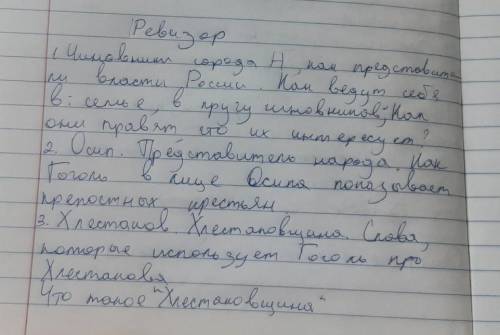 Ревизор
1. Чиновники города Н, как представите
ли власти России. Как ведут себя
в: семье, в кругу чиновников, Как
они правят что их интересует?
2. Осип. Представитель народа. Как
Гоголь в лице Осипа показывает
крепостных крестьян
3. Хлестаков Хлестаковщина. Слова,
которые использует Гоголь про
Хлестакова
Что такое "Хлестаковщина"